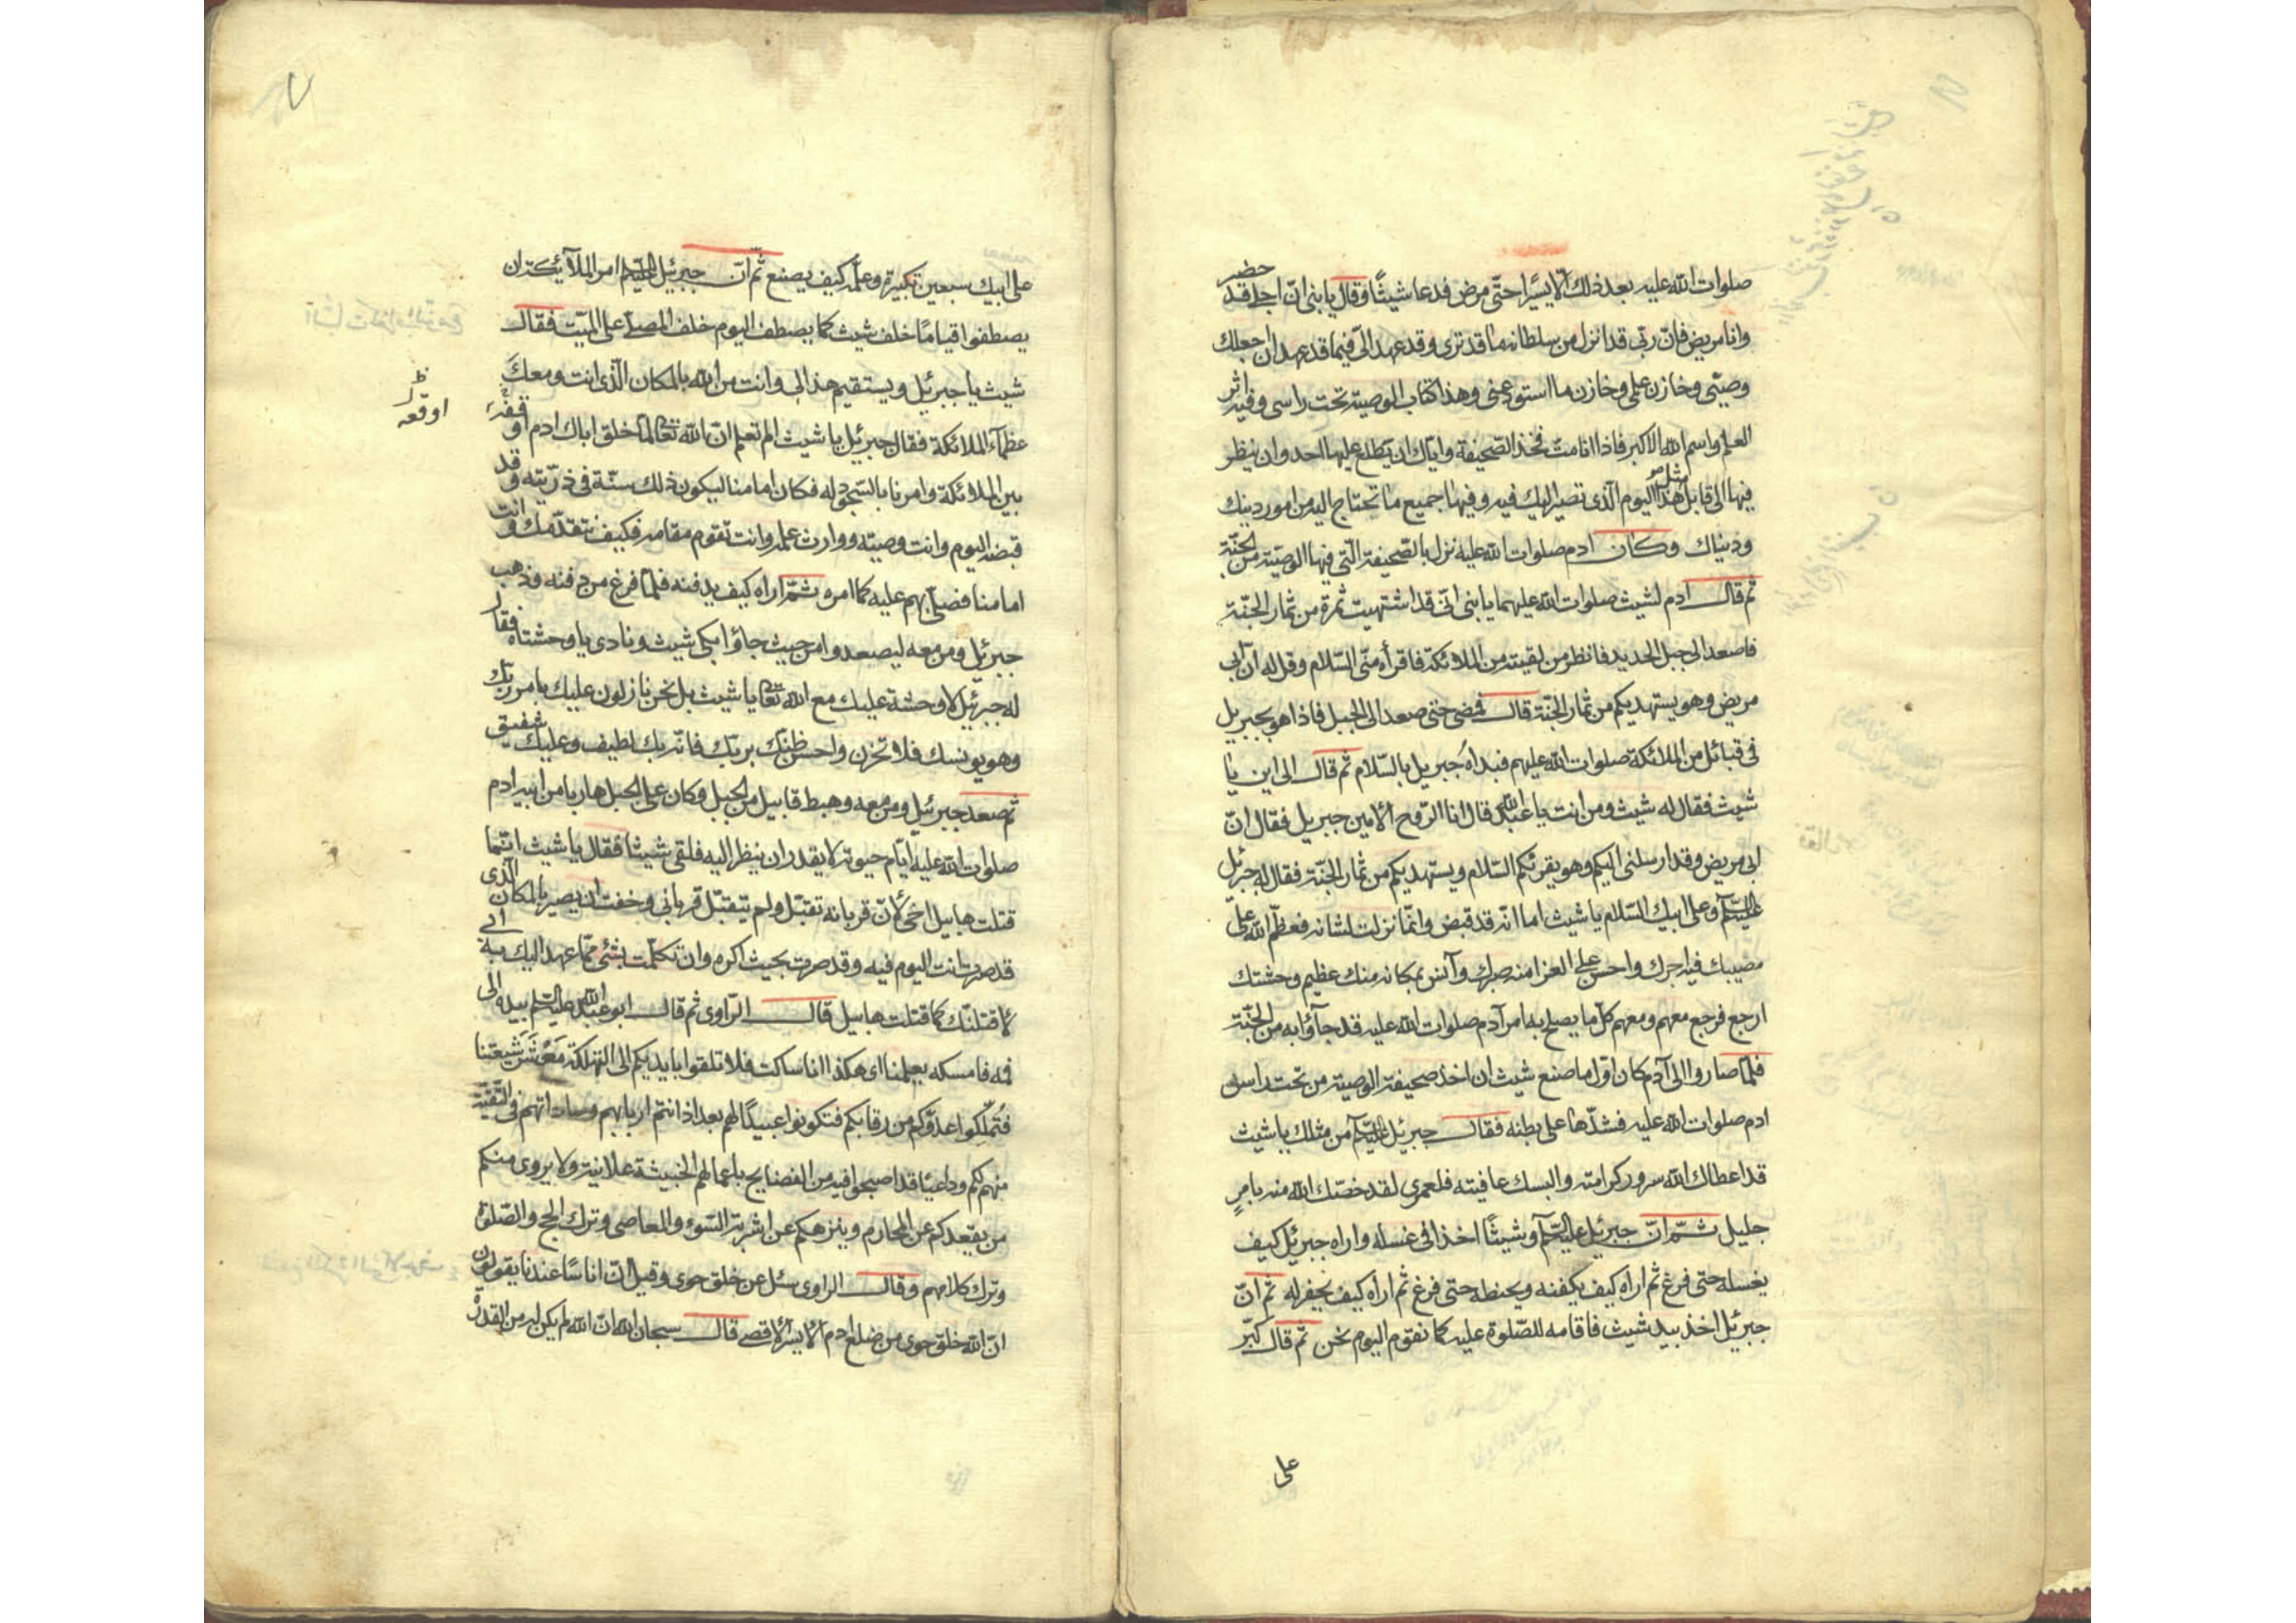 صلوات الله عليه بعد ذلك الّا يسيرًا حتّى مرض فدعا شيثًا وقال يا بنى انّ اجلى قد حضر
وانا مريض فانّ ربّى قد انزل من سلطانه ما قد ترى وقد عهد الىّ فيما قد عهد ان جعلك
وصيّى وخازن على وخازن ما استودعنى وهذا كتاب الوصية تحت راسى وفيه اثر
العلم واسم الله الاكبر فاذا انا متّ فخذ الصّحيفة وايّاك ان يطلع عليها احد وان ينظر
فيها الى قابل مثل هذا اليوم الّذى تصير اليك فيه وفيها جميع ما تحتاج اليه من امور دينك
ودنياك وكان ادم صلوات الله عليه نزل بالصّحيفة الّتى فيها الوصيّة من الجنّة
ثم قال ادم لشيث صلوات الله عليهما يا بنى انّى قد اشتهيت ثمرة من ثمار الجنّة
فاصعد الى جبل الحديد فانظر من لقيته من الملائكة فاقرأه منّى السّلام وقل له انّ ابى
مريض وهو يستهديكم من ثمار الجنّة قال فمضى حتى صعد الى الجبل فاذا هو بجبريل
فى قبائل من الملائكة صلوات الله عليهم فبداه جبريل بالسّلام ثم قال الى اين يا
شيث فقال له شيث ومن انت يا عبد الله قال انا الرّوح الامين جبريل فقال انّ
ابى مريض وقد ارسلنى اليكم وهو يقرئكم السّلام ويستهديكم من ثمار الجنّة فقال له جبرئيل
عليه السّلم وعلى ابيك السّلام يا شيث اما انّه قد قبض وانّما نزلت لشانه فعظّم الله على
مصيبك فيه اجرك واحسن على العزا منه صبرك وآنس بمكانه منك عظيم وحشتك
ارجع فرجع معهم ومعهم كلّ ما يصلح به امر آدم صلوات الله عليه قد جاؤا به من الجنّة
فلمّا صاروا الى آدم كان اوّل ما صنع شيث ان اخذ صحيفة الوصية من تحت راس
ادم صلوات الله عليه فشدّها على بطنه فقال جبرئيل عليه السّلم من مثلك يا شيث
قد اعطاك الله سرور كرامته والبسك عافيته فلعمرى لقد خصّك الله منه بامرٍ
جليل ثمّ انّ جبرئيل عليه السّلم وشيثًا اخذا فى غسله واراه جبرئيل كيف
يغسله حتى فرغ ثم اراه كيف يكفنه ويحنطه حتى فرغ ثم اراه كيف يحفر له ثم انّ
جبرئيل اخذ بيد شيث فاقامه للصّلوة عليه كما نقوم اليوم نحن ثم قال كبّر
على
على ابيك سبعين تكبيرة وعلّمه كيف يصنع ثم انّ جبرئيل عليه السّلم امر الملآئكة ان
يصطفوا قيامًا خلف شيث كما يصطف اليوم خلف المصلّى على الميّت فقال
شيث يا جبرئيل ويستقيم هذا لى وانت من الله بالمكان الّذى انت ومعك
عظمآء الملائكة فقال جبرئيل يا شيث الم تعلم انّ الله تعالى لمّا خلق اباك ادم اوقفه
ظ
اوقعه
بين الملائكة وامرنا بالسّجود له فكان امامنا ليكون ذلك سنّة فى ذرّيته وقد
قبضه اليوم وانت وصيّه ووارث علمه وانت تقوم مقامه فكيف نتقدّمك وانت
امامنا فصلّى بهم عليه كما امره ثمّ اراه كيف يدفنه فلمّا فرغ من دفنه وذهب
جبرئيل ومن معه ليصعدوا من حيث جاؤا بكى شيث ونادى يا وحشتاه فقال
له جبرئيل لا وحشة عليك مع الله تعالى يا شيث بل نحن نازلون عليك بامر ربّك
وهو يونسك فلا تحزن واحسن ظنّك بربّك فانّه بك لطيف وعليك شفيق
ثم صعد جبرئيل ومن معه وهبط قابيل من الجبل وكان على الجبل هاربا من ابيه ادم
صلوات الله عليه ايّام حيوته لا يقدر ان ينظر اليه فلقى شيثا فقال يا شيث انّما
قتلت هابيل اخى لانّ قربانه تقبّل ولم يتقبّل قربانى وخفت ان يصير بالمكان الّذى
قد صرت انت اليوم فيه وقد صرت بحيث اكره وان تكلّمت بشئ ممّا عهد اليك به ابى
لاقتلنّك كما قتلت هابيل قال الرّاوى ثم قال ابو عبد الله عليه السّلم بيده الى
فمه فامسكه يعلمنا اى هكذا انا ساكت فلا تلقوا بايديكم الى التهلكة معشر شيعتنا
فتملّكوا عدوّكم من رقابكم فتكونوا عبيدًا لهم بعد اذ انتم اربابهم وساداتهم فى التّقيّة
منهم لكم وداعيًا قد اصبحوا فيه من الفضايح باعمالهم الخبيثة علانية ولا يروى منكم
من يقعدكم عن المحارم وينزهكم عن اشربة السّوء والمعاصى وترك الحج والصّلوة
وترك كلامهم وقال الراوى سئل عن خلق حوى وقيل انّ اناسًا عندنا يقولون
انّ الله خلق حوى من ضلع ادم الايسر الاقصى قال سبحان الله انّ الله لم يكن له من القدرة